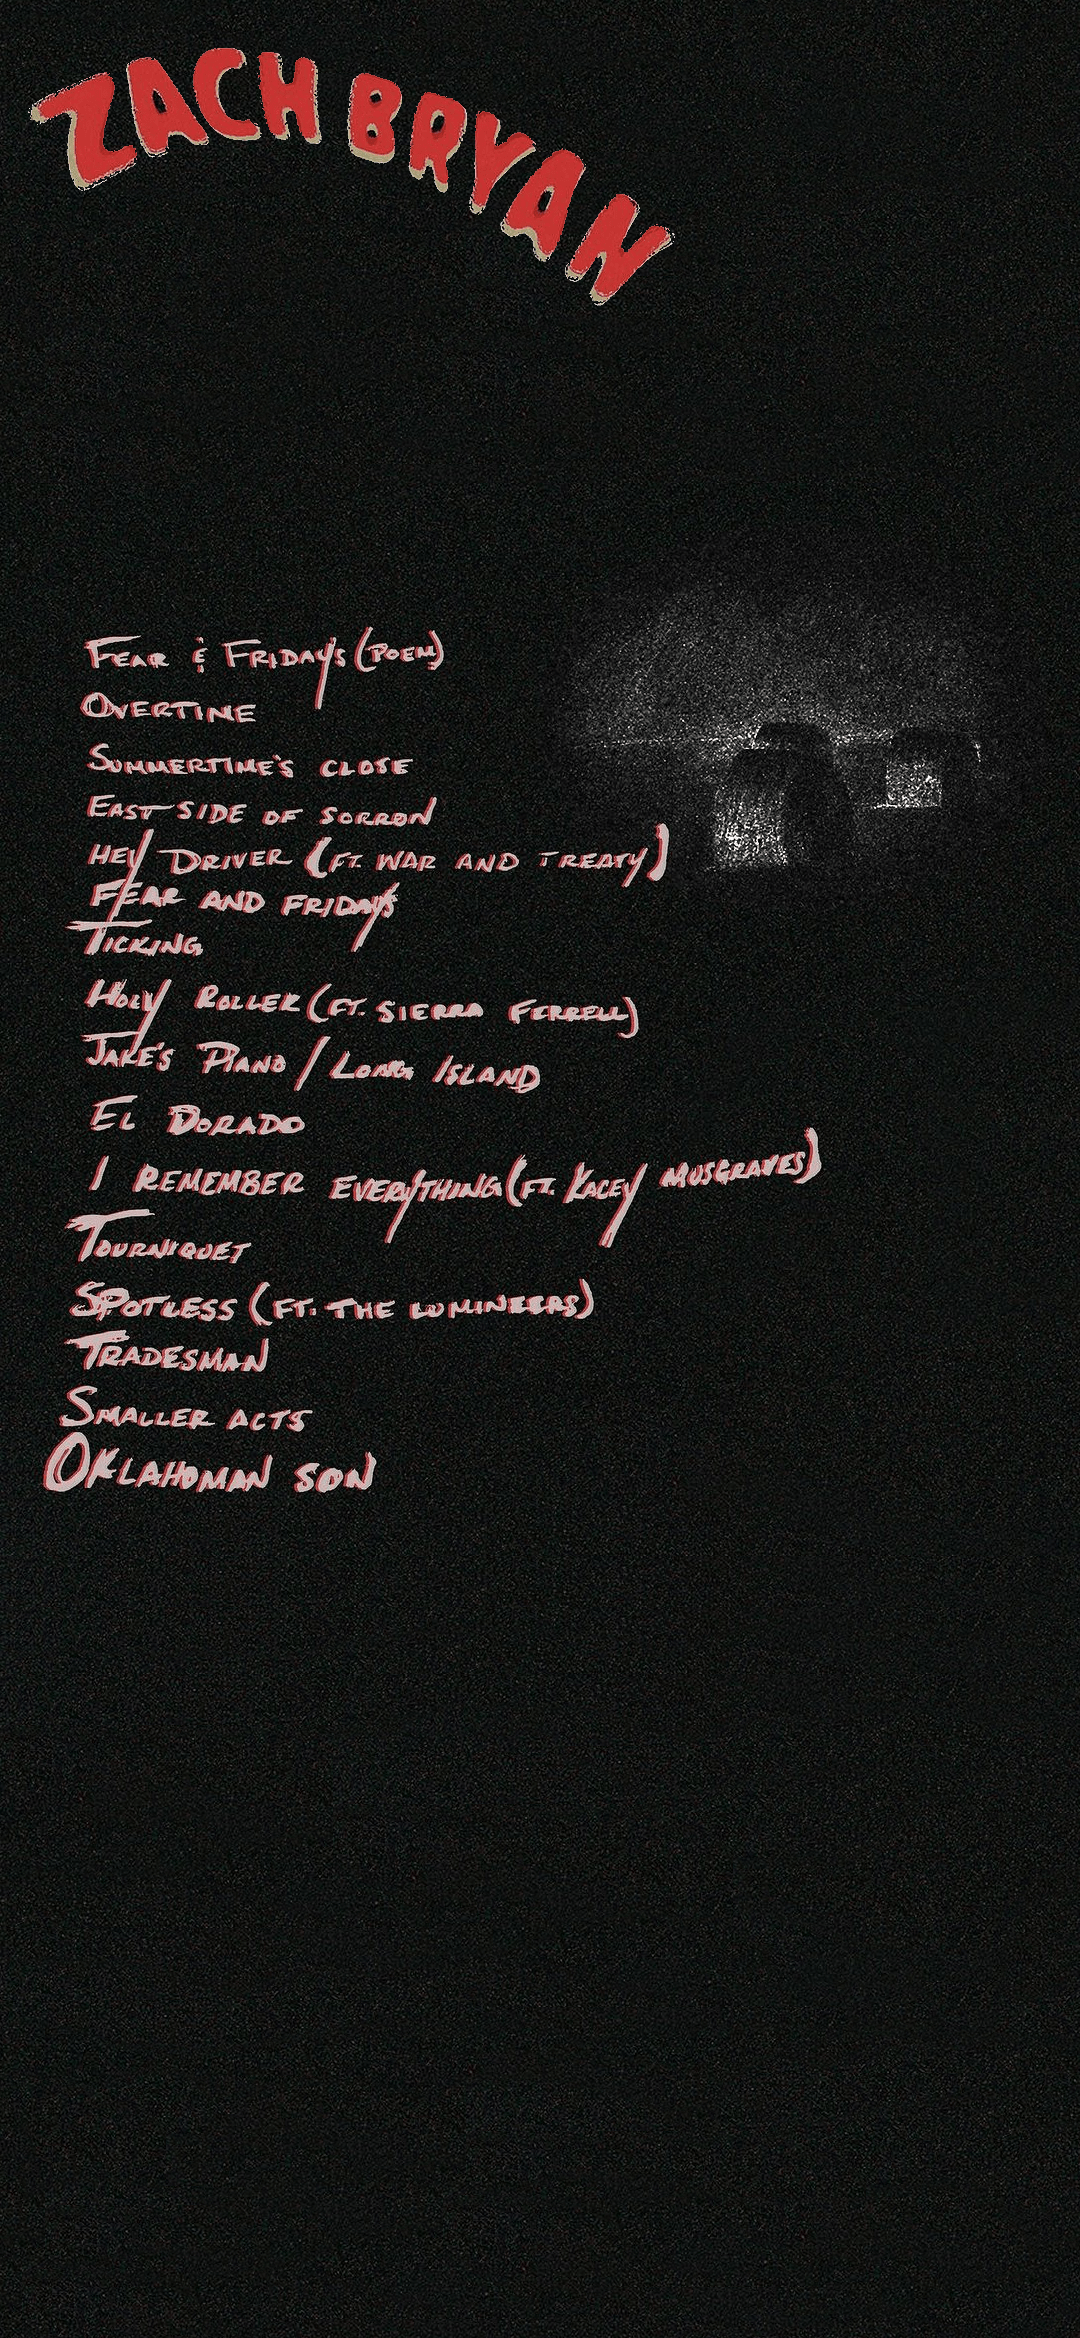 ZACH BRYAN
FEAR & FRIDAY'S (POEM)
OVERTIME
SUMMERTIME'S CLOSE
EAST SIDE OF SORROW
HEY DRIVER (FT. WAR AND TREATY)
FEAR AND FRIDAYS
TICKING
HOLY ROLLER (FT. SIERRA FERRELL)
JAKE'S PIANO / LONG ISLAND
EL DORADO
I REMEMBER EVERYTHING (FT. KACEY MUSGRAVES)
TOURNIQUET
SPOTLESS (FT. THE LUMINEERS)
TRADESMAN
SMALLER ACTS
OKLAHOMAN SON